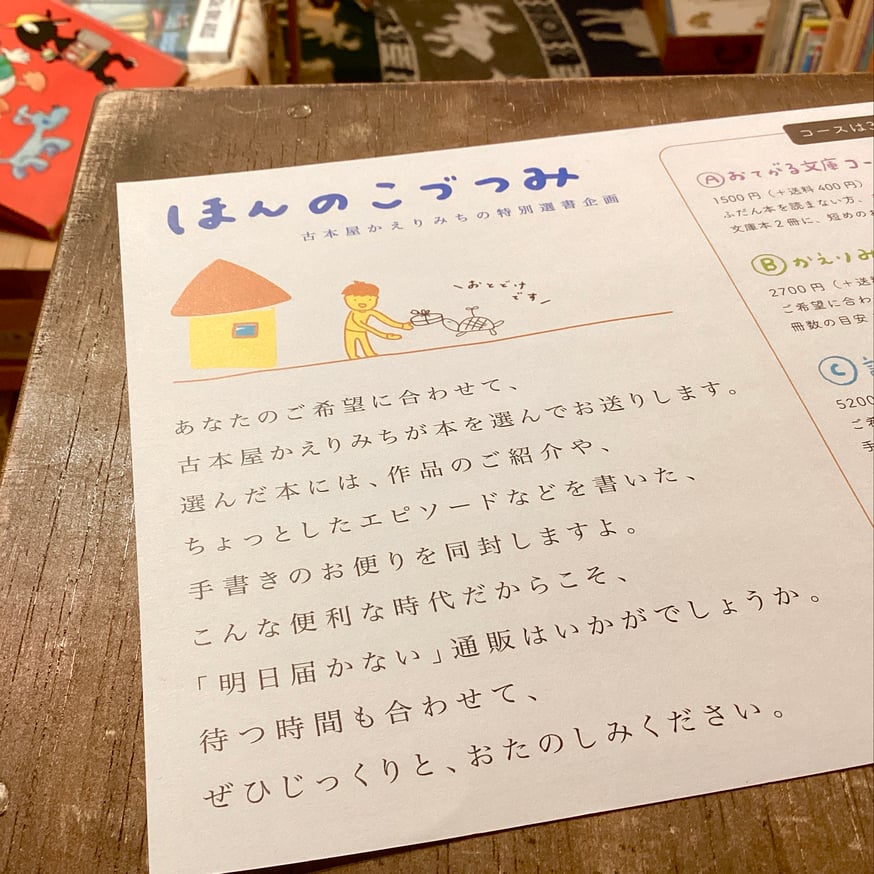 ほんのこづつみ
古本屋かえりみちの特別選書企画
おとどけ
です
あなたのご希望に合わせて、
古本屋かえりみちが本を選んでお送りします。
選んだ本には、作品のご紹介や、
ちょっとしたエピソードなどを書いた、
手書きのお便りを同封しますよ。
こんな便利な時代だからこそ、
「明日届かない」通販はいかがでしょうか。
待つ時間も合わせて、
ぜひじっくりと、おたのしみください。
コースは3
A おてがる文庫コー
1500円（＋送料400円）
ふだん本を読まない方、
文庫本2冊に、短めのお
B かえりみ
2700円（＋送料
ご希望に合わ
冊数の目安
C
5200
ご希
手